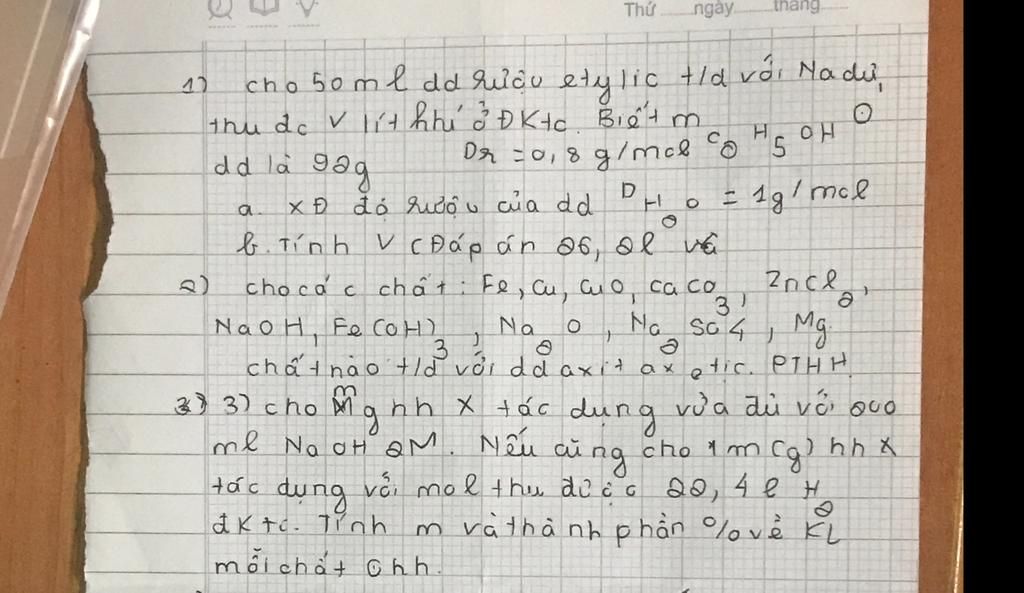 Thứ ngày tháng
1) cho 50 ml dd rượu etylic t/d với Na dư,
thu đc V lít khí ở ĐKtc. Biết m
dd là 92g Dr = 0,8 g/mcl C2H5OH
a. XĐ độ rượu của dd D H2O = 1g/mcl
b. Tính V (Đáp án 26, 2l
2) cho các chất: Fe, Cu, CuO, CaCO3, ZnCl2,
NaOH, Fe(OH)3, Na2O, Na2SO4, Mg.
chất nào t/d với dd axit axetic. PTHH
3) cho m g hh X tác dụng vừa đủ với 200
ml NaOH 2M. Nếu cũng cho 1 m(g) hh X
tác dụng với mol thu được 22,4 l H2
đKtc. Tính m và thành phần % về KL
mỗi chất hh.